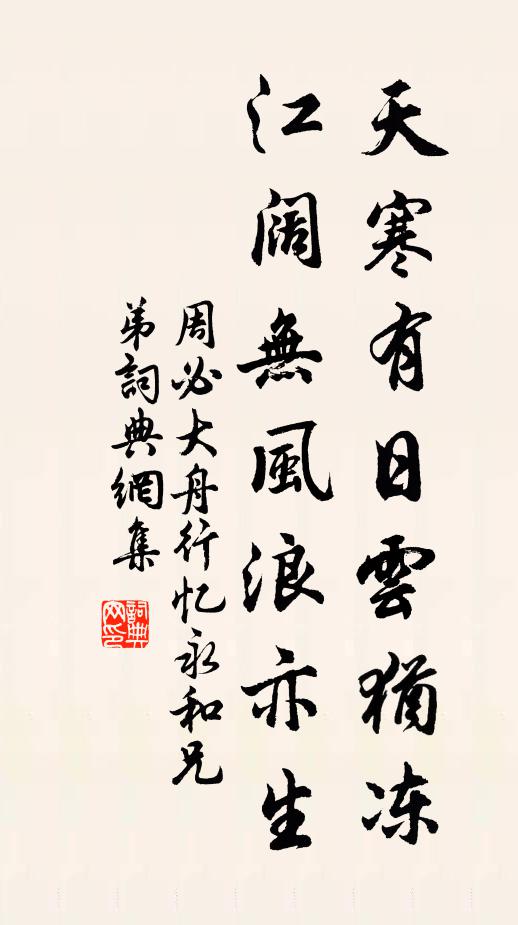 天寒有日雲猶冻
江阔無風浪亦生
周必大舟行忆永和兄
弟詞典網集
詞典
网印